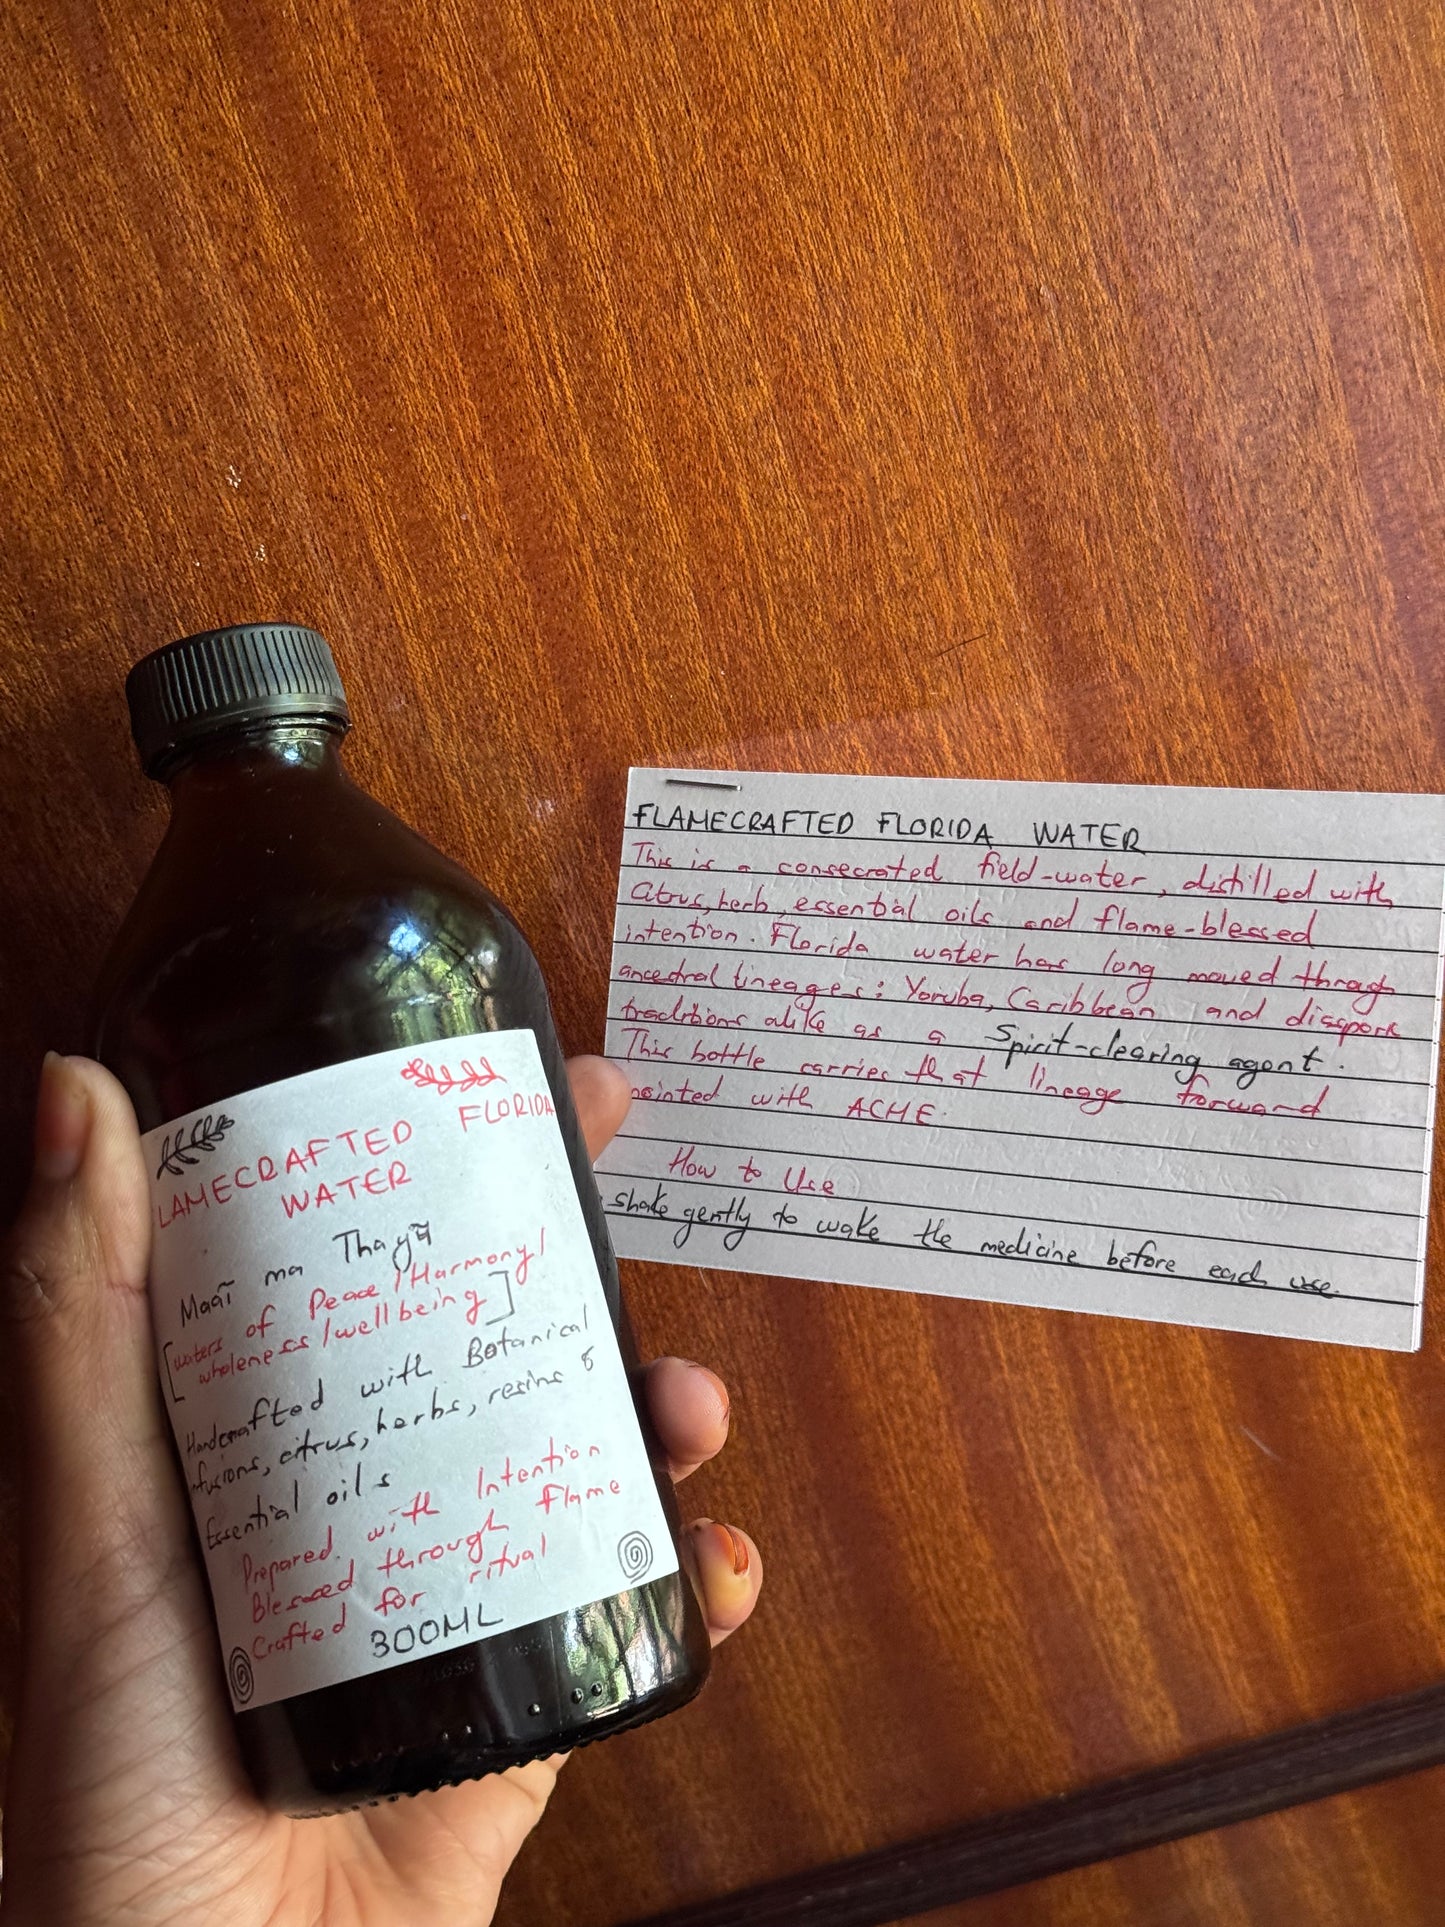 FLAMECRAFTED FLORIDA
WATER
Maaĩ ma Thayũ
[waters of Peace/Harmony/
wholeness/wellbeing]
Handcrafted with Botanical
nfusions, citrus, herbs, resins &
Essential oils
Prepared with Intention
Blessed through flame
Crafted for ritual
300ML
FLAMECRAFTED FLORIDA WATER
This is a consecrated field-water, distilled with
Citrus, herb, essential oils and flame-blessed
intention. Florida water has long moved through
ancestral lineages: Yoruba, Caribbean and diaspora
traditions alike as a Spirit-clearing agent.
This bottle carries that lineage forward
nointed with ACHE.
How to Use
shake gently to wake the medicine before each use.